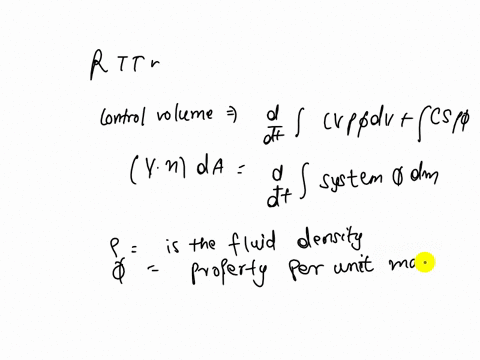 RTTr
Control volume ⇒ d/dt ∫ CVρϕdv + ∫ CSρϕ
(V·n) dA = d/dt ∫ system ϕ dm
ρ = is the fluid density
ϕ = property per unit ma